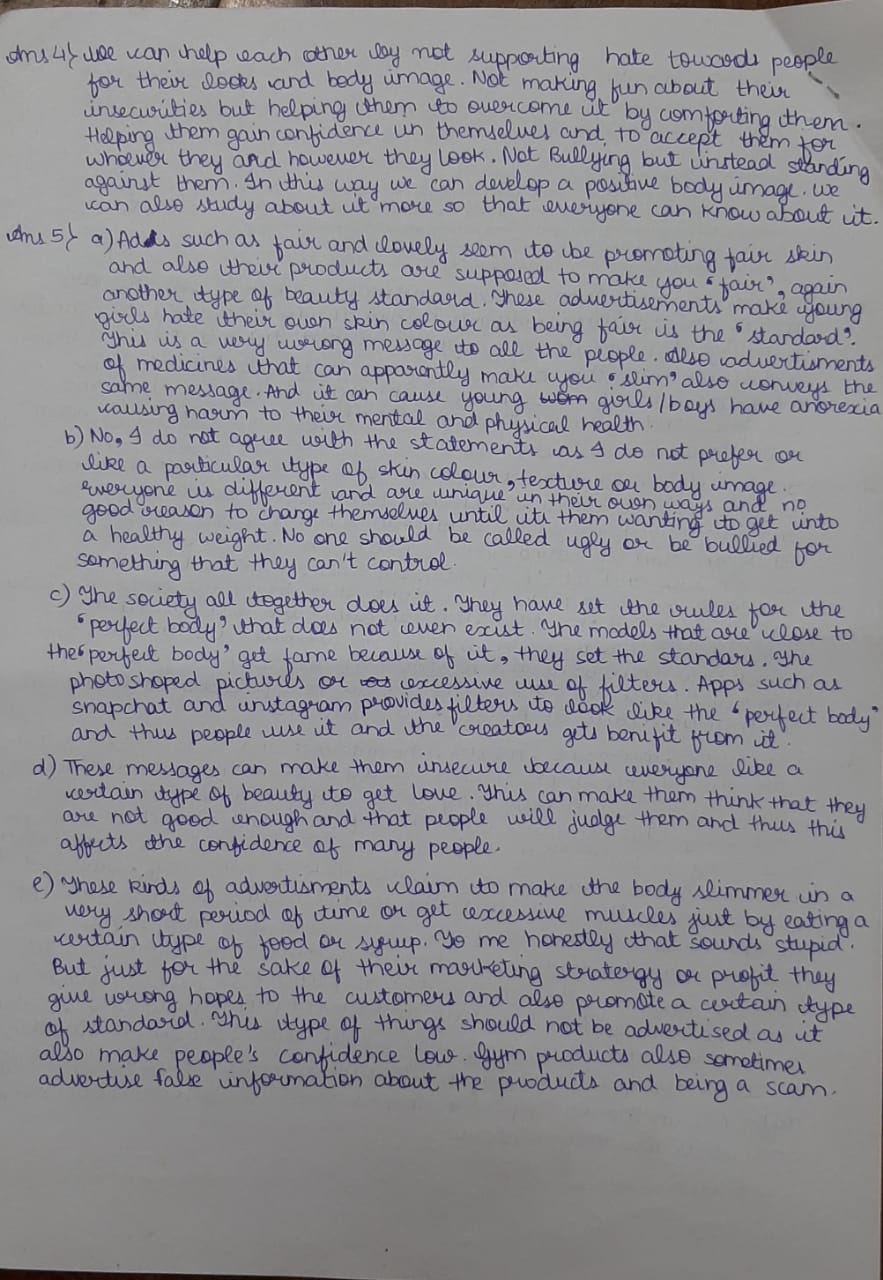 Ans 4} We can help each other by not supporting hate towards people
for their looks and body image. Not making fun about their
insecurities but helping them to overcome it by comforting them.
Helping them gain confidence in themselves and to accept them for
whoever they and however they look. Not Bullying but instead standing
against them. In this way we can develop a positive body image. We
can also study about it more so that everyone can know about it.
Ans 5} a) Adds such as fair and lovely seem to be promoting fair skin
and also their products are supposed to make you "fair", again
another type of beauty standard. These advertisements make young
girls hate their own skin colour as being fair is the "standard".
This is a very wrong message to all the people. Also advertisments
of medicines that can apparently make you "slim" also conveys the
same message. And it can cause young girls/boys have anorexia
causing harm to their mental and physical health.
b) No, I do not agree with the statements as I do not prefer or
like a particular type of skin colour, texture or body image.
Everyone is different and are unique in their own ways and no
good reason to change themselves until its them wanting to get into
a healthy weight. No one should be called ugly or be bullied for
something that they can't control.
c) The society all together does it. They have set the rules for the
"perfect body" that does not even exist. The models that are close to
the "perfect body" get fame because of it, they set the standars. The
photoshoped pictures or excessive use of filters. Apps such as
snapchat and instagram provides filters to look like the "perfect body"
and thus people use it and the creators gets benifit from it.
d) These messages can make them insecure because everyone like a
certain type of beauty to get love. This can make them think that they
are not good enough and that people will judge them and thus this
affects the confidence of many people.
e) These kinds of advertisments claim to make the body slimmer in a
very short period of time or get excessive muscles just by eating a
certain type of food or syrup. To me honestly that sounds stupid.
But just for the sake of their marketing stratergy or profit they
give wrong hopes to the customers and also promote a certain type
of standard. This type of things should not be advertised as it
also make people's confidence low. Gym products also sometimes
advertise false information about the products and being a scam.